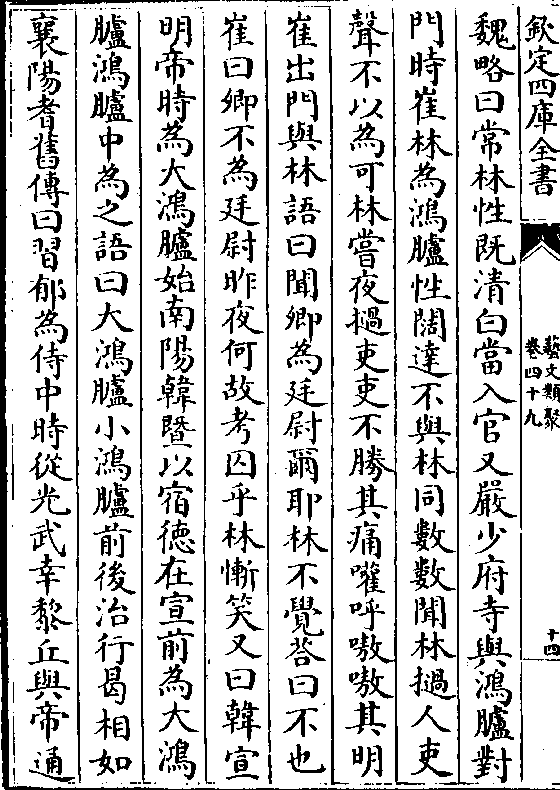 欽定四庫全書
藝文類聚
卷四十九
十四
魏略曰常林性既清白當入官又嚴少府寺與鴻臚對
門時崔林為鴻臚性闊達不與林同數數聞林撾人吏
聲不以為可林嘗夜撾吏吏不勝其痛嚾呼嗷嗷其明
崔出門與林語曰聞卿為廷尉爾耶林不覺荅曰不也
崔曰卿不為廷尉昨夜何故考囚乎林慚笑又曰韓宣
明帝時為大鴻臚始南陽韓暨以宿德在宣前為大鴻
臚鴻臚中為之語曰大鴻臚小鴻臚前後治行曷相如
襄陽耆舊傳曰習郁為侍中時從光武幸黎丘與帝通